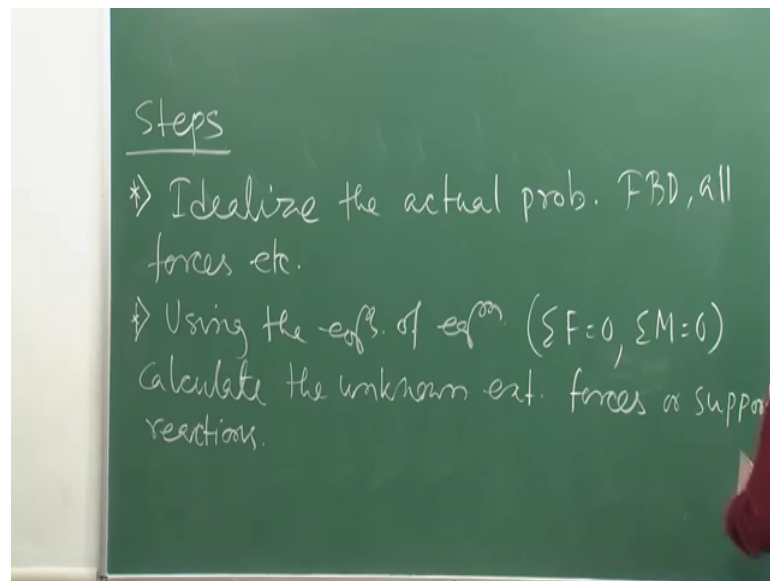 Steps
*) Idealize the actual prob. FBD, all
forces etc.
*) Using the eqⁿs. of eqᵐ. (ΣF=0, ΣM=0)
Calculate the unknown ext. forces or suppor
reactions.